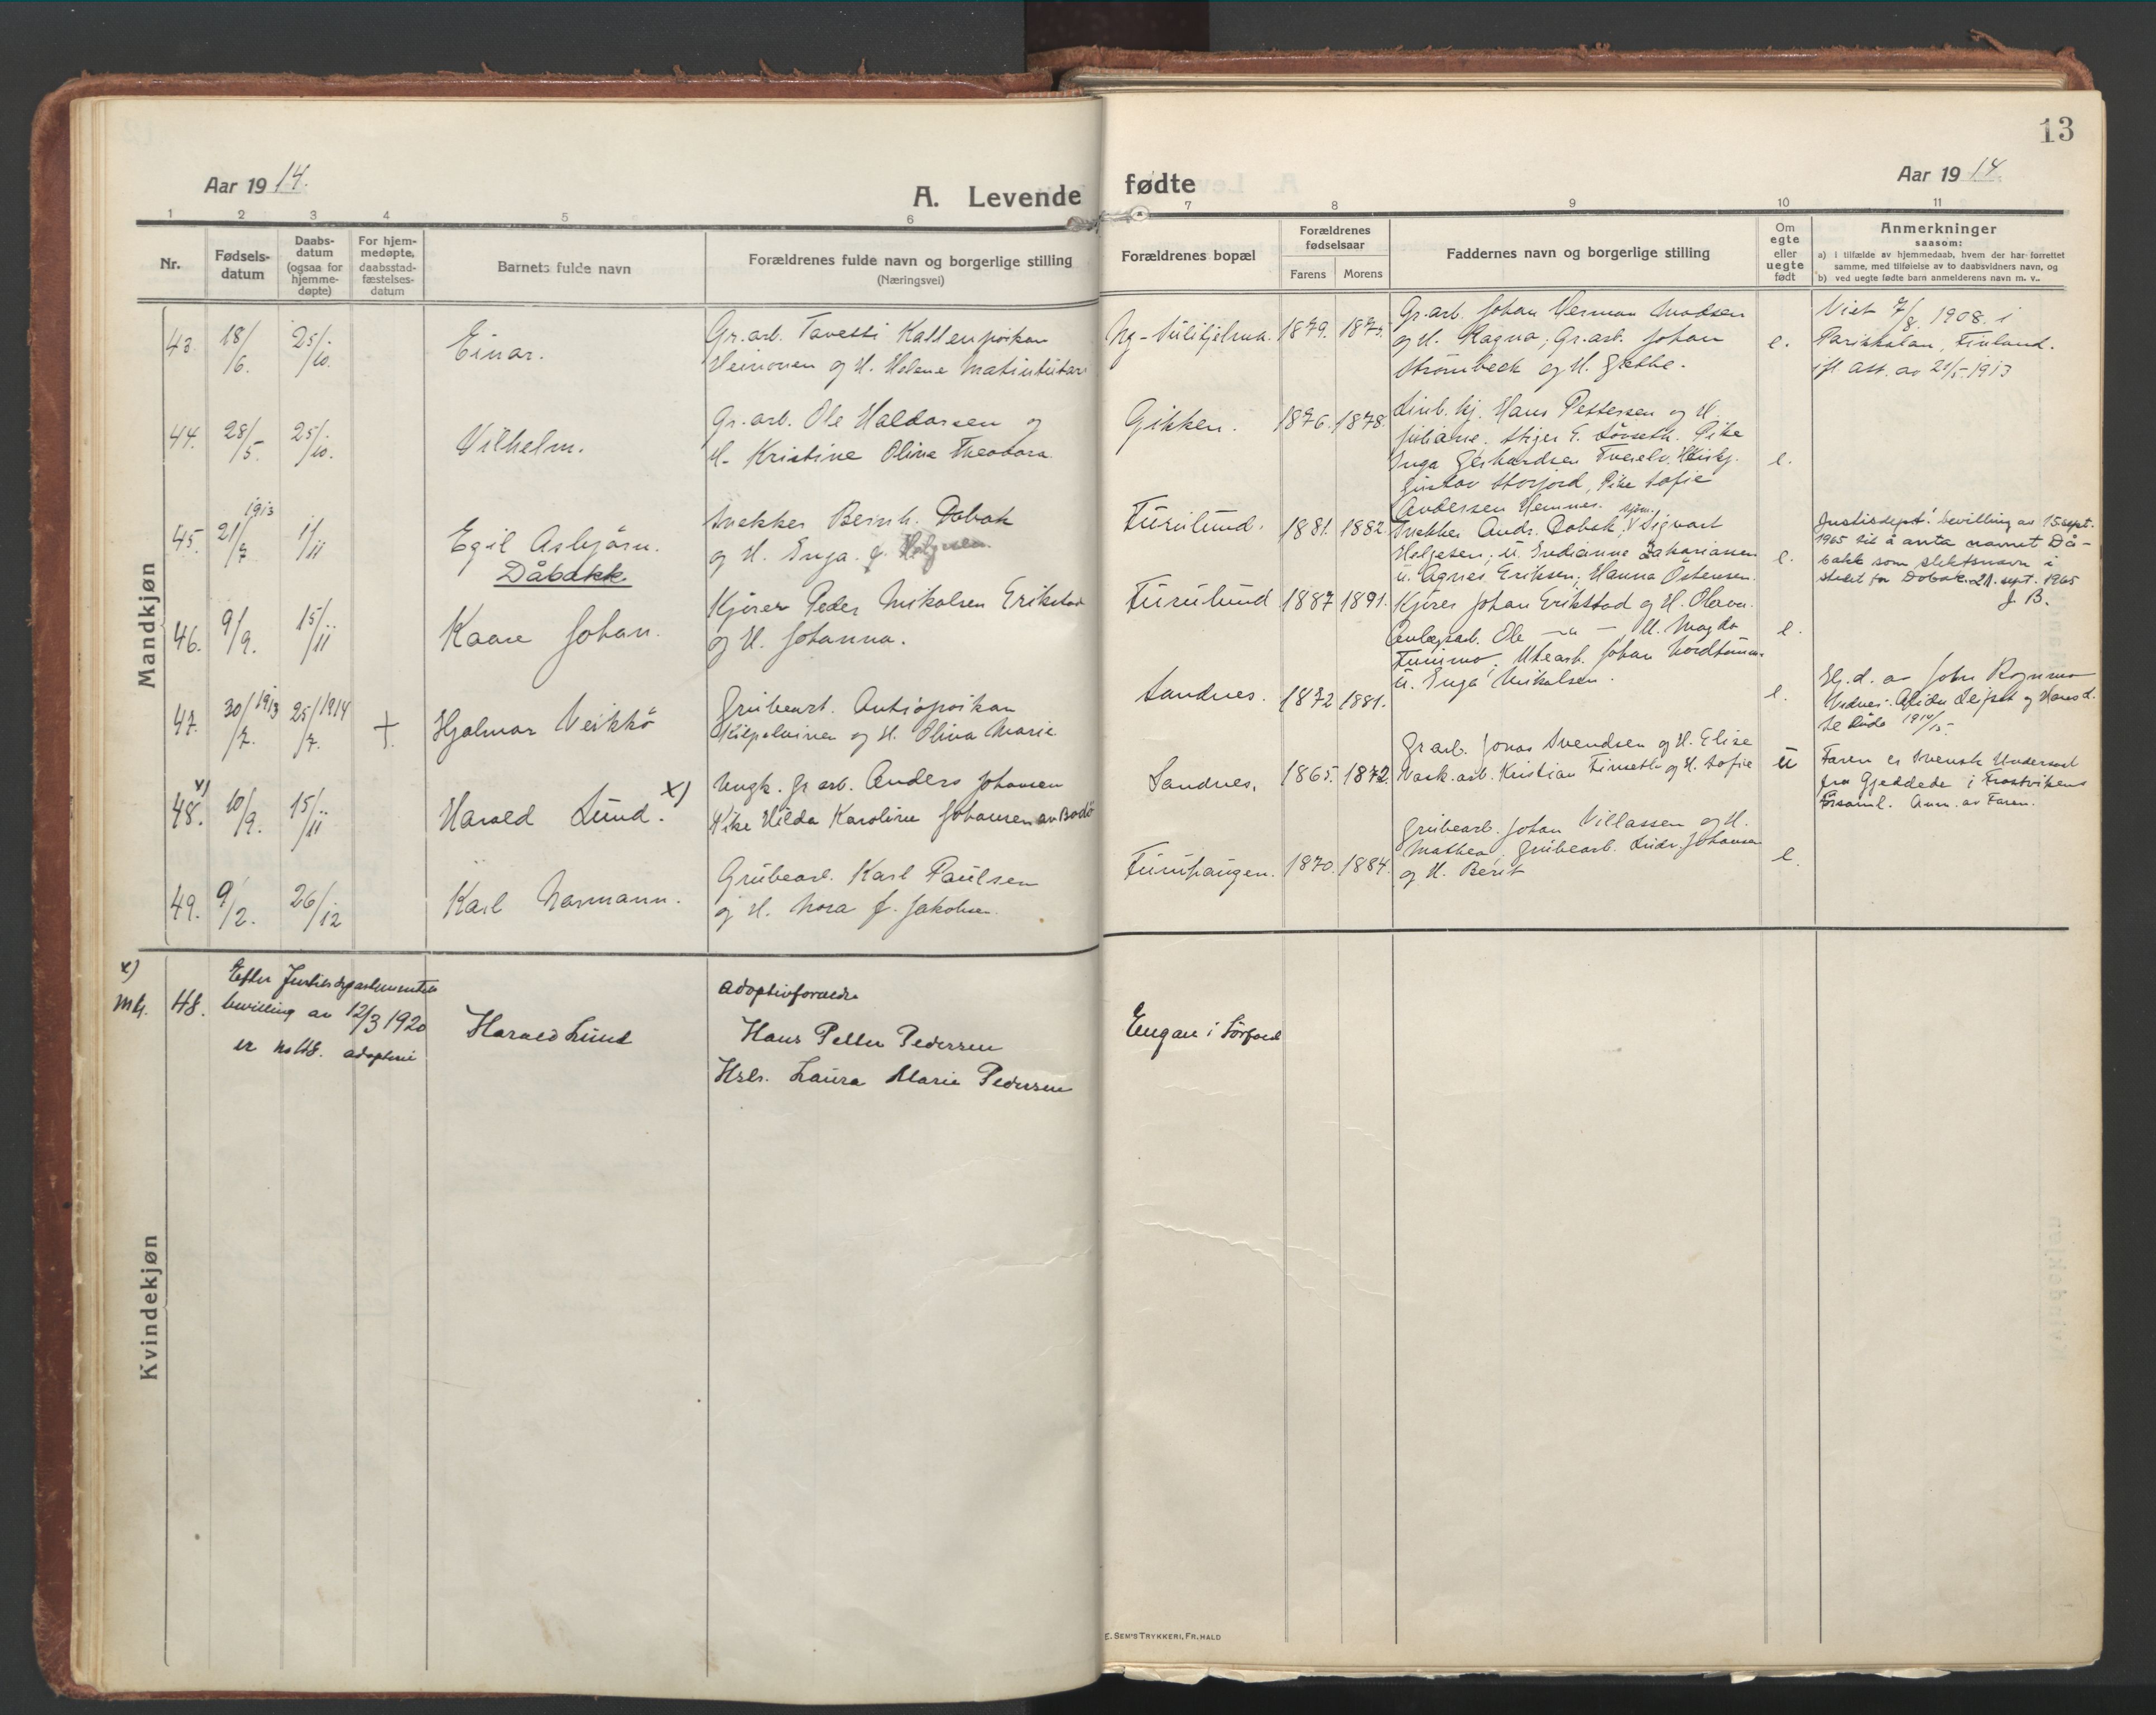 13
Aar 1914.
A. Levende fødte
Aar 1914.
1 2 3 4 5 6 7 8 9 10 11
Nr.
Fødsels-
datum
Daabs-
datum
(ogsaa for
hjemme-
døpte)
For hjem-
medøpte,
daabsstad-
fæstelses-
datum
Barnets fulde navn
Forældrenes fulde navn og borgerlige stilling
(Næringsvei)
Forældrenes bopæl
Forældrenes
fødselsaar
Farens Morens
Faddernes navn og borgerlige stilling
Om
egte
eller
uegte
født
Anmerkninger
saasom:
a) i tilfælde av hjemmedaab, hvem der har forrettet
samme, med tilføielse av to daabsvidners navn, og
b) ved uegte fødte barn anmelderens navn m. v..
Mandkjøn
43. 18/6. 25/10. Einar.
Gr.arb. Tavetti Kallenpoikan
Heinonen og H. Helena
Ny-Sulitjelma. 1879.
Gr.arb. Johan Herman Madsen
og H. Ragna; Gr.arb. Johan
Strømbeck og H. Grethe.
e.
Viet 7/8 1908 i
Parikkalan, Finland.
ifl. att. av 21/5 1913
44. 28/5. 25/10. Vilhelm.
Gr.arb. Ole Haldorsen og
H. Kristine Oline Theodora.
Gikken. 1876. 1878.
Hans Pettersen og H.
Juliane. Stiger E. Pike
Inga Gerhardsen
Gustav Storjord, Pike Sofie
Andersen Hemnes.
e.
45. 21/7. 1913 1/11 Egil Asbjørn.
Dåbakk
Snekker Bernh. Dobak
og H. Inga. f. Helgesen.
Furulund. 1881. 1882.
Snekker Andr. Dobak, Sigvart
Helgesen; U. Zakariassen
U. Agnes Eriksen; Hanna Østensen.
e.
Justisdept.' bevilling av 15 sept.
1965 til å anta navnet Då-
bakk som slektsnavn i
stedet for Dobak. 21. sept. 1965
J. B.
46. 9/9. 15/11 Kaare Johan.
Kjører Peder Nikolsen Erikstad
og H. Johanna.
Furulund 1887 1891.
Kjører Johan Erikstad og H. Olava.
Anlægsarb. Ole — " — U. Magda
Furumo; Utearb. Johan
U. Inga Nikolsen.
e.
47. 30/7. 1913 25/7. 1914 † Hjalmar Veikkö
Grubearb.
og H. Olina Marie
Sandnes. 1872 1881.
e.
Hj.d. av John Rognmo
48. x) 10/9. 15/11 Harald Lund. x)
Ungk. Gr.arb. Anders Johansen
Pike Hilda Karoline Johansen av Bodø
Sandnes. 1865. 1872.
Gr.arb. Jonas Svendsen og H. Elise
Vask.arb. Kristian og H. Sofie
u
Faren er svensk Undersaat
fra Gjeddede i Frostvikens
Församl. Anm. av Faren.
49. 9/2. 26/12 Karl Normann.
Grubearb. Karl Paulsen
og H. Nora f. Jakobsen.
Furuhaugen. 1870. 1884.
Grubearb. Johan Villassen og H.
Mathea; Grubearb. Ludv. Johansen
og H. Berit
e.
x)
Mk. 48.
Efter Justisdepartementets
bevilling av 12/3 1920
er no 48. adopteret
Harald Lund
Adoptivforældre
Hans Petter Pedersen
Hstr. Laura Marie Pedersen
Engan i Sørfold
Kvindekjøn
E. SEM'S TRYKKERI, FR.HALD